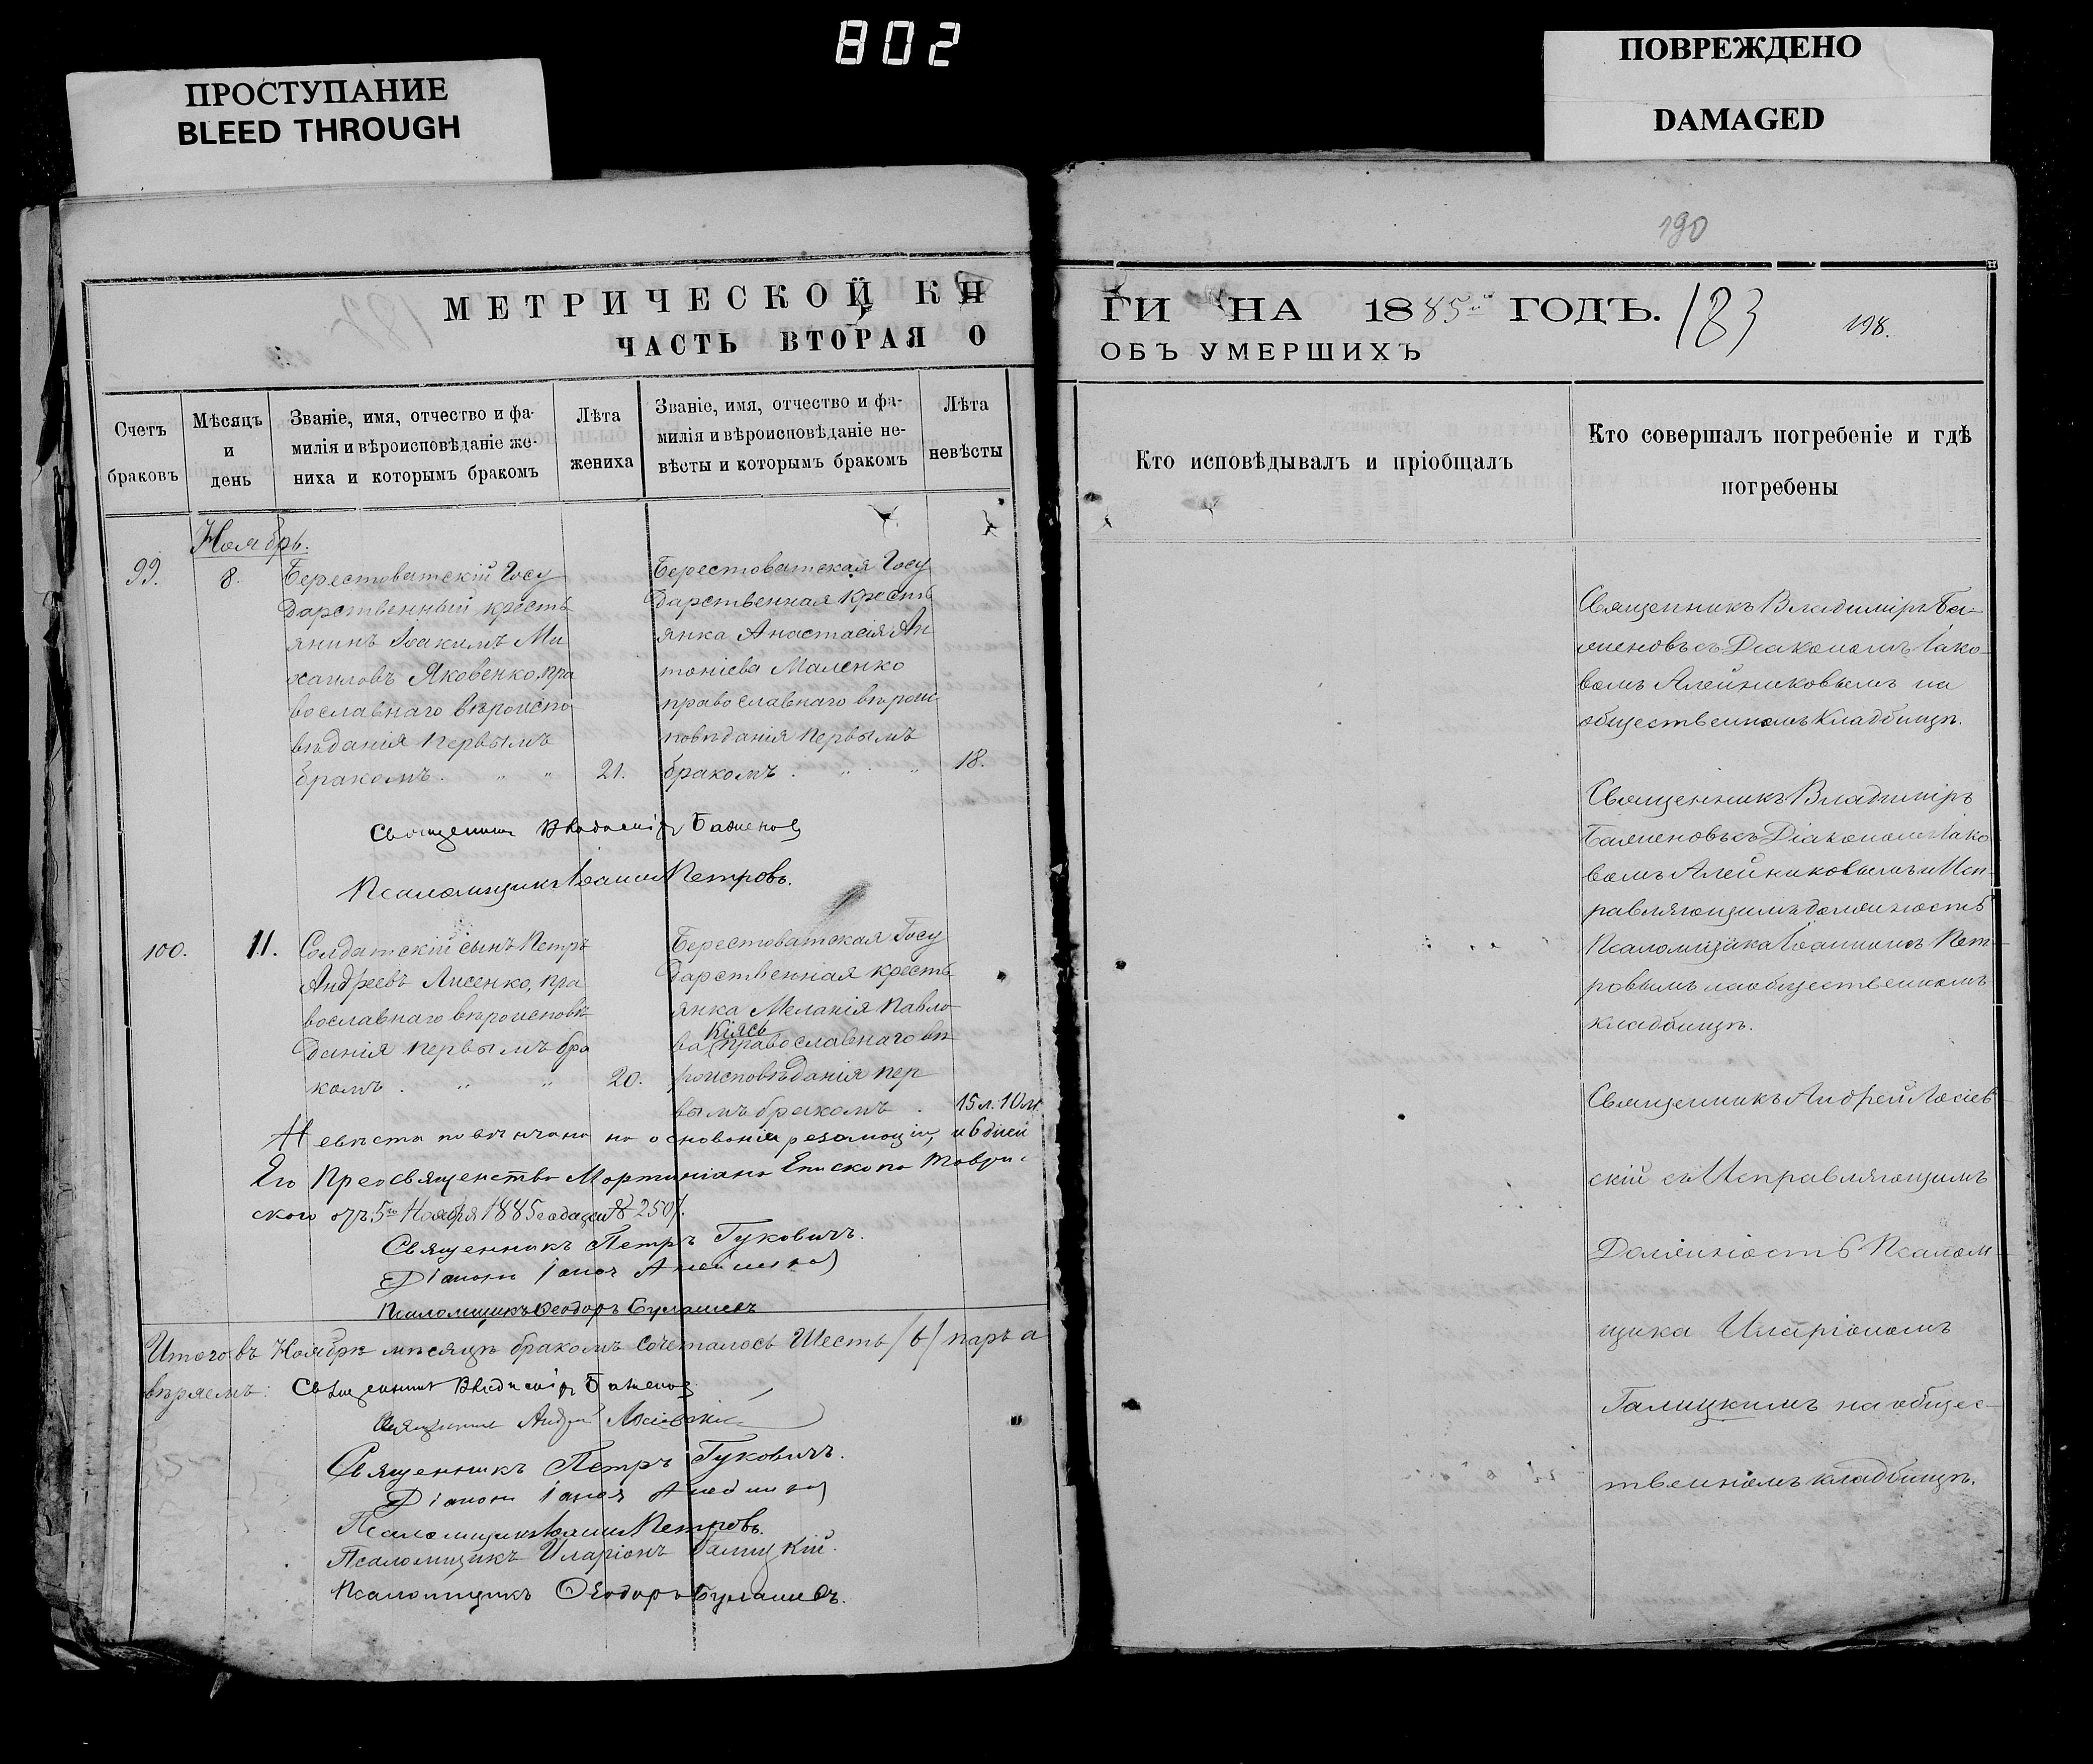 802
ПРОСТУПАНИЕ
BLEED THROUGH
ПОВРЕЖДЕНО
DAMAGED
МЕТРИЧЕСКОЙ КН
ЧАСТЬ ВТОРАЯ О
Счетъ браковъ
Мѣсяцъ и день
Званіе, имя, отчество и фа-
милія и вѣроисповѣданіе же-
ниха и которымъ бракомъ
Лѣта жениха
Званіе, имя, отчество и фа-
милія и вѣроисповѣданіе не-
вѣсты и которымъ бракомъ
Лѣта невѣсты
Ноябрь.
99. 8.
Берестоватскій Госу
дарственный кресть
янинъ Іоакимъ Ми
хаиловъ Яковенко, пра
вославнаго вѣроиспо
вѣданія первымъ
бракомъ. " " 21.
Берестоватская Госу
дарственная кресть
янка Анастасія Ан
тоніева Маленко
православнаго вѣроис
повѣданія первымъ
бракомъ. " " 18.
Священникъ Владиміръ Баженовъ
Псаломщикъ Іоаннъ Петровъ.
100. 11.
Солдатскій сынъ Петръ
Андреевъ Лисенко, пра
вославнаго вѣроисповѣ
данія первымъ бра
комъ. " " 20.
Берестоватская Госу
дарственная кресть
янка Меланія Павло
ва Кіясь православнаго вѣ
роисповѣданія пер
вымъ бракомъ. 15 л. 10 м.
и 6 дней
Невѣста повѣнчана на основаніи резолюціи,
Его Преосвященства Мартиніана Епископа Таври-
ского отъ 5го Ноября 1885 года за № 2507.
Священникъ Петръ Гуковичъ.
Діаконъ Іаковъ Алейниковъ
Псаломщикъ Ѳеодоръ Булашевъ
Итого въ Ноябрѣ мѣсяцѣ бракомъ сочеталось Шесть /6/ паръ а
вѣряемъ: Священникъ Владиміръ Баженовъ
Священникъ Андрей Лосіевскій
Священникъ Петръ Гуковичъ.
Діаконъ Іаковъ Алейниковъ
Псаломщикъ Іоаннъ Петровъ.
Псаломщикъ Иларіонъ Галицкій.
Псаломщикъ Ѳеодоръ Булашевъ.
190
ГИ НА 1885й ГОДЪ. 183 198.
ОБЪ УМЕРШИХЪ
Кто исповѣдывалъ и пріобщалъ
Кто совершалъ погребеніе и гдѣ
погребены
Священникъ Владиміръ Ба-
женовъ съ Діакономъ Іако-
вомъ Алейниковымъ на
общественномъ кладбищѣ.
Священникъ Владиміръ
Баженовъ съ Діакономъ Іако
вомъ Алейниковымъ и Исп-
равляющимъ должность
Псаломщика Іоанномъ Пет-
ровымъ на общественномъ
кладбищѣ.
Священникъ Андрей Лосіев-
скій съ Исправляющимъ
Должность Псалом-
щика Иларіономъ
Галицкимъ на общес-
твенномъ кладбищѣ.